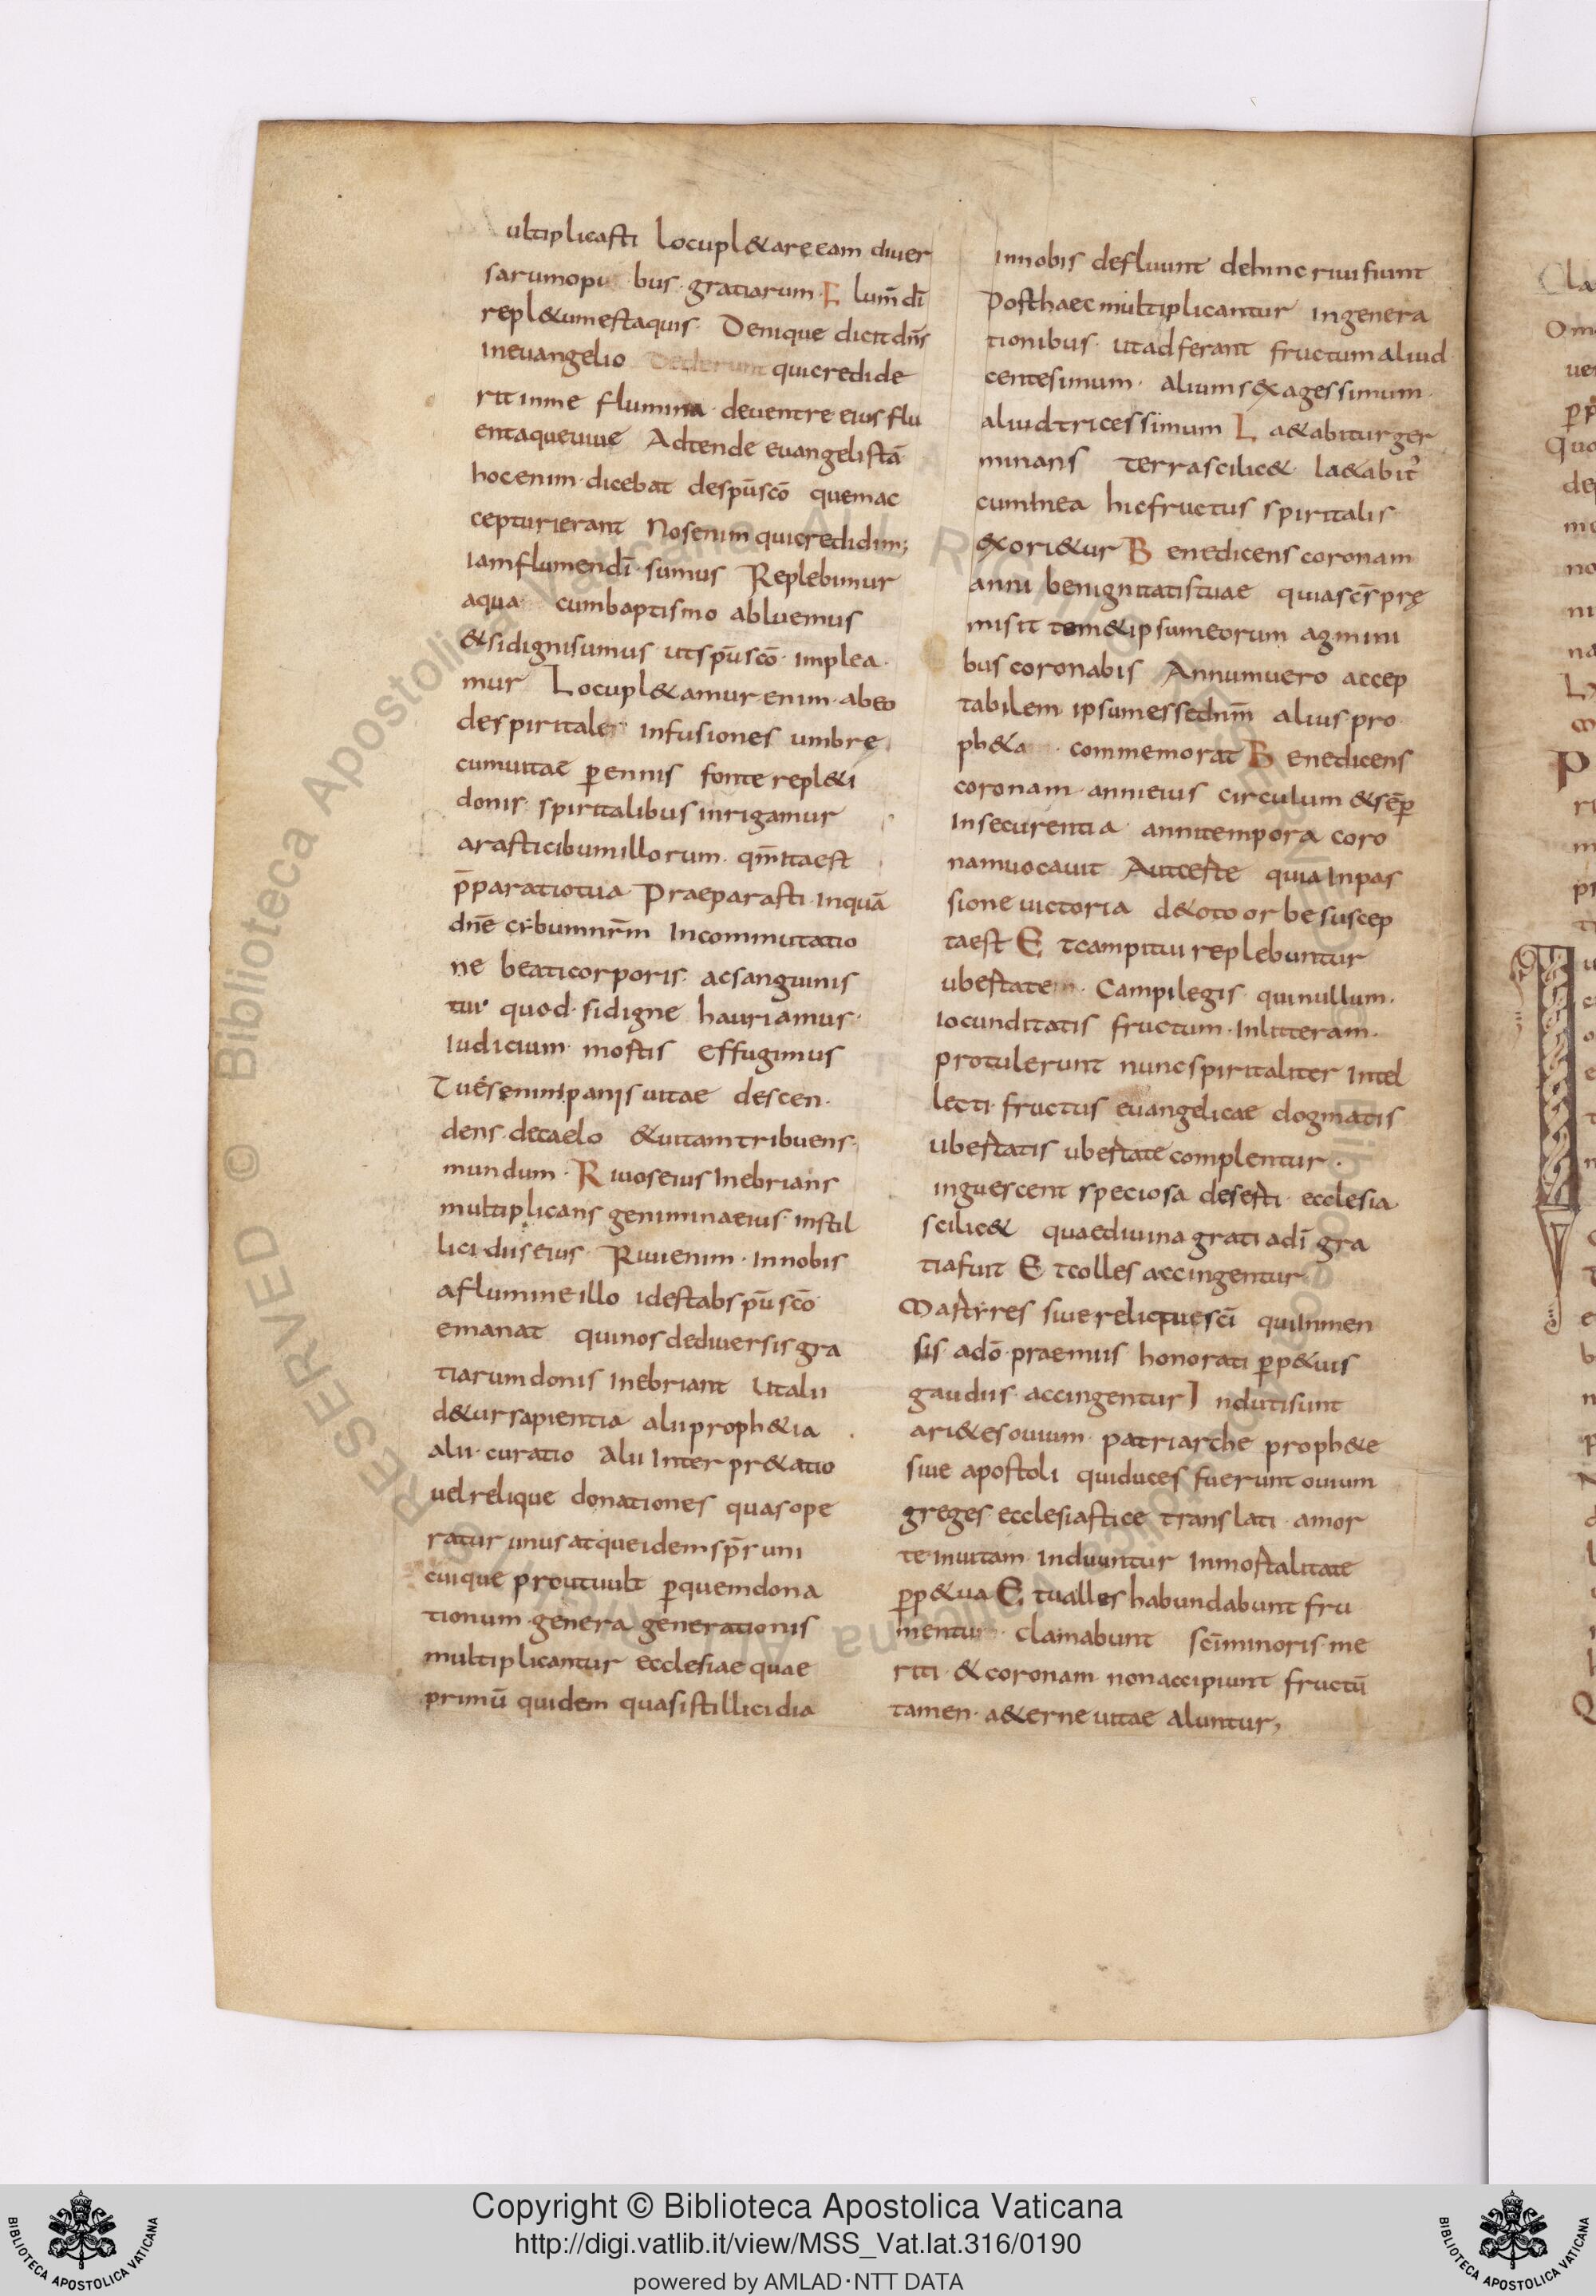 ultiplicasti locupl&are eam diuer
sarum opi bus · gratiarum · F lum̄ dī
repl&um est aquis · Denique dicit dn̄s
in euangelio qui credide
rit in me flumina · de uentre eius flu
ent aque uiue Adtende euangelistā
hoc enim · dicebat de spū scō quem ac
cepturi erant Nos enim qui credidim;
iam flumen dī · sumus Replebimur
aqua cum baptismo abluemus
& si digni sumus · ut spū scō · implea ·
mur Locupl&amur · enim · ab eo
de spiritales infusiones umbre
cum uitae p̄ennis fonte repl&i
donis · spiritalibus inrigamur
arasti cibum illorum · qm̄ ita est
p̄paratio tua Praeparasti · inquā
dn̄e cybum nr̄m In commutatio
ne beati corporis · ac sanguinis
tui quod · si digne hauriamus ·
iudicium · mortis effugimus
Tu es enim panis uitae descen ·
dens · de caelo & uitam tribuens ·
mundum · Riuos eius inebrians
multiplicans genimina eius · in stil
licidiis eius · Riui enim · in nobis
a flumine illo id est ab spū scō
emanat qui nos de diuersis gra
tiarum donis inebriant Ut alii
d&ur sapientia alii proph&ia
alii · curatio alii interpr&atio
uel relique donationes quas ope
ratur unus atque idem sp̄s uni
cuique prout uult p̄ quem dona
tionum · genera generationis
multiplicantur ecclesiae quae
primū quidem quasi stillicidia
in nobis defluunt dehinc riui fiunt
Post haec multiplicantur in genera
tionibus · ut adferant fructum aliud
centesimum · alium sexagessimum ·
aliud tricessimum L a&abitur ger
minans terra scilic& la&abit̄
cum in ea hic fructus spiritalis ·
exori&ur Benedicens coronam
anni benignitatis tuae quia sc̄s prę
misit tem&ipsum eorum agmini
bus coronabis Annum uero accep
tabilem ipsum esse dn̄m alius pro
ph&a · commemorat Benedicens
coronam · anni eius circulum & sēp
in se currentia · anni tempora coro
nam uocauit Aut certe quia in pas
sione uictoria d& oto orbe suscep
ta est Et campi tui replebuntur
ubertate · Campi legis · qui nullum ·
iocunditatis fructum · in litteram ·
protulerunt nunc spiritaliter intel
lecti · fructus euangelicae dogmatis
ubertatis ubertate complentur ·
inguescent speciosa deserti · ecclesia
scilic& quae diuina gratia dī gra
tia fuit Et colles accingentur
Martyres siue relique scī qui in men
sis ad dō praemiis honorati p̄p&uis
gaudiis · accingentur Induti sunt
ari&es ouium · patriarche proph&e
siue apostoli qui duces fuerunt ouium
greges · ecclesiastice translati · a mor
te in uitam · induuntur inmortalitate
p̄p&ua Et ualles habundabunt fru
mentu clamabunt scī minoris · me
riti · & coronam · non accipiunt fructū
tamen · a&erne uitae aluntur;
Copyright © Biblioteca Apostolica Vaticana
http://digi.vatlib.it/view/MSS_Vat.lat.316/0190
powered by AMLAD·NTT DATA
BIBLIOTECA APOSTOLICA VATICANA
BIBLIOTECA APOSTOLICA VATICANA